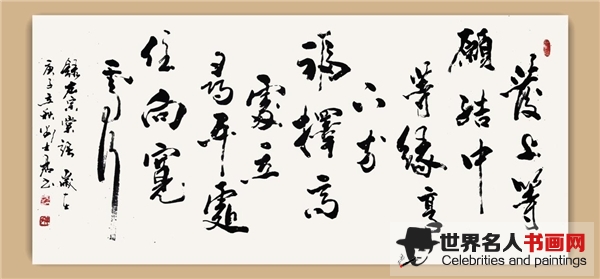 發上等
願結中
等緣享
下等
福擇高
處立
尋平處
住向寬
處行
錄左宗棠語 歲在
庚子立秋劉士書
世界名人书画网
Celebrities and paintings